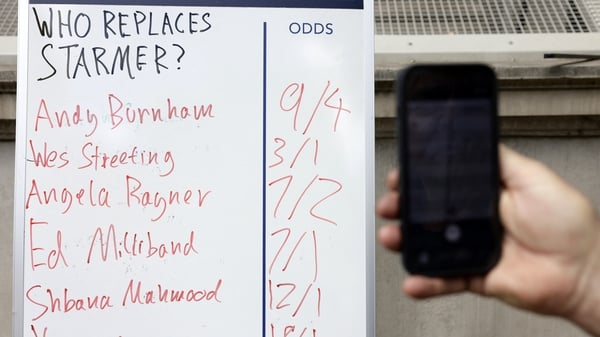 WHO REPLACES ODDS
STARMER?
Andy Burnham 9/4
Wes Streeting 3/1
Angela Rayner 7/2
Ed Milliband 7/1
Shbana Mahmood 12/1